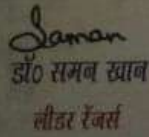 Saman
डॉ० समन खान
लीडर रेंजर्स